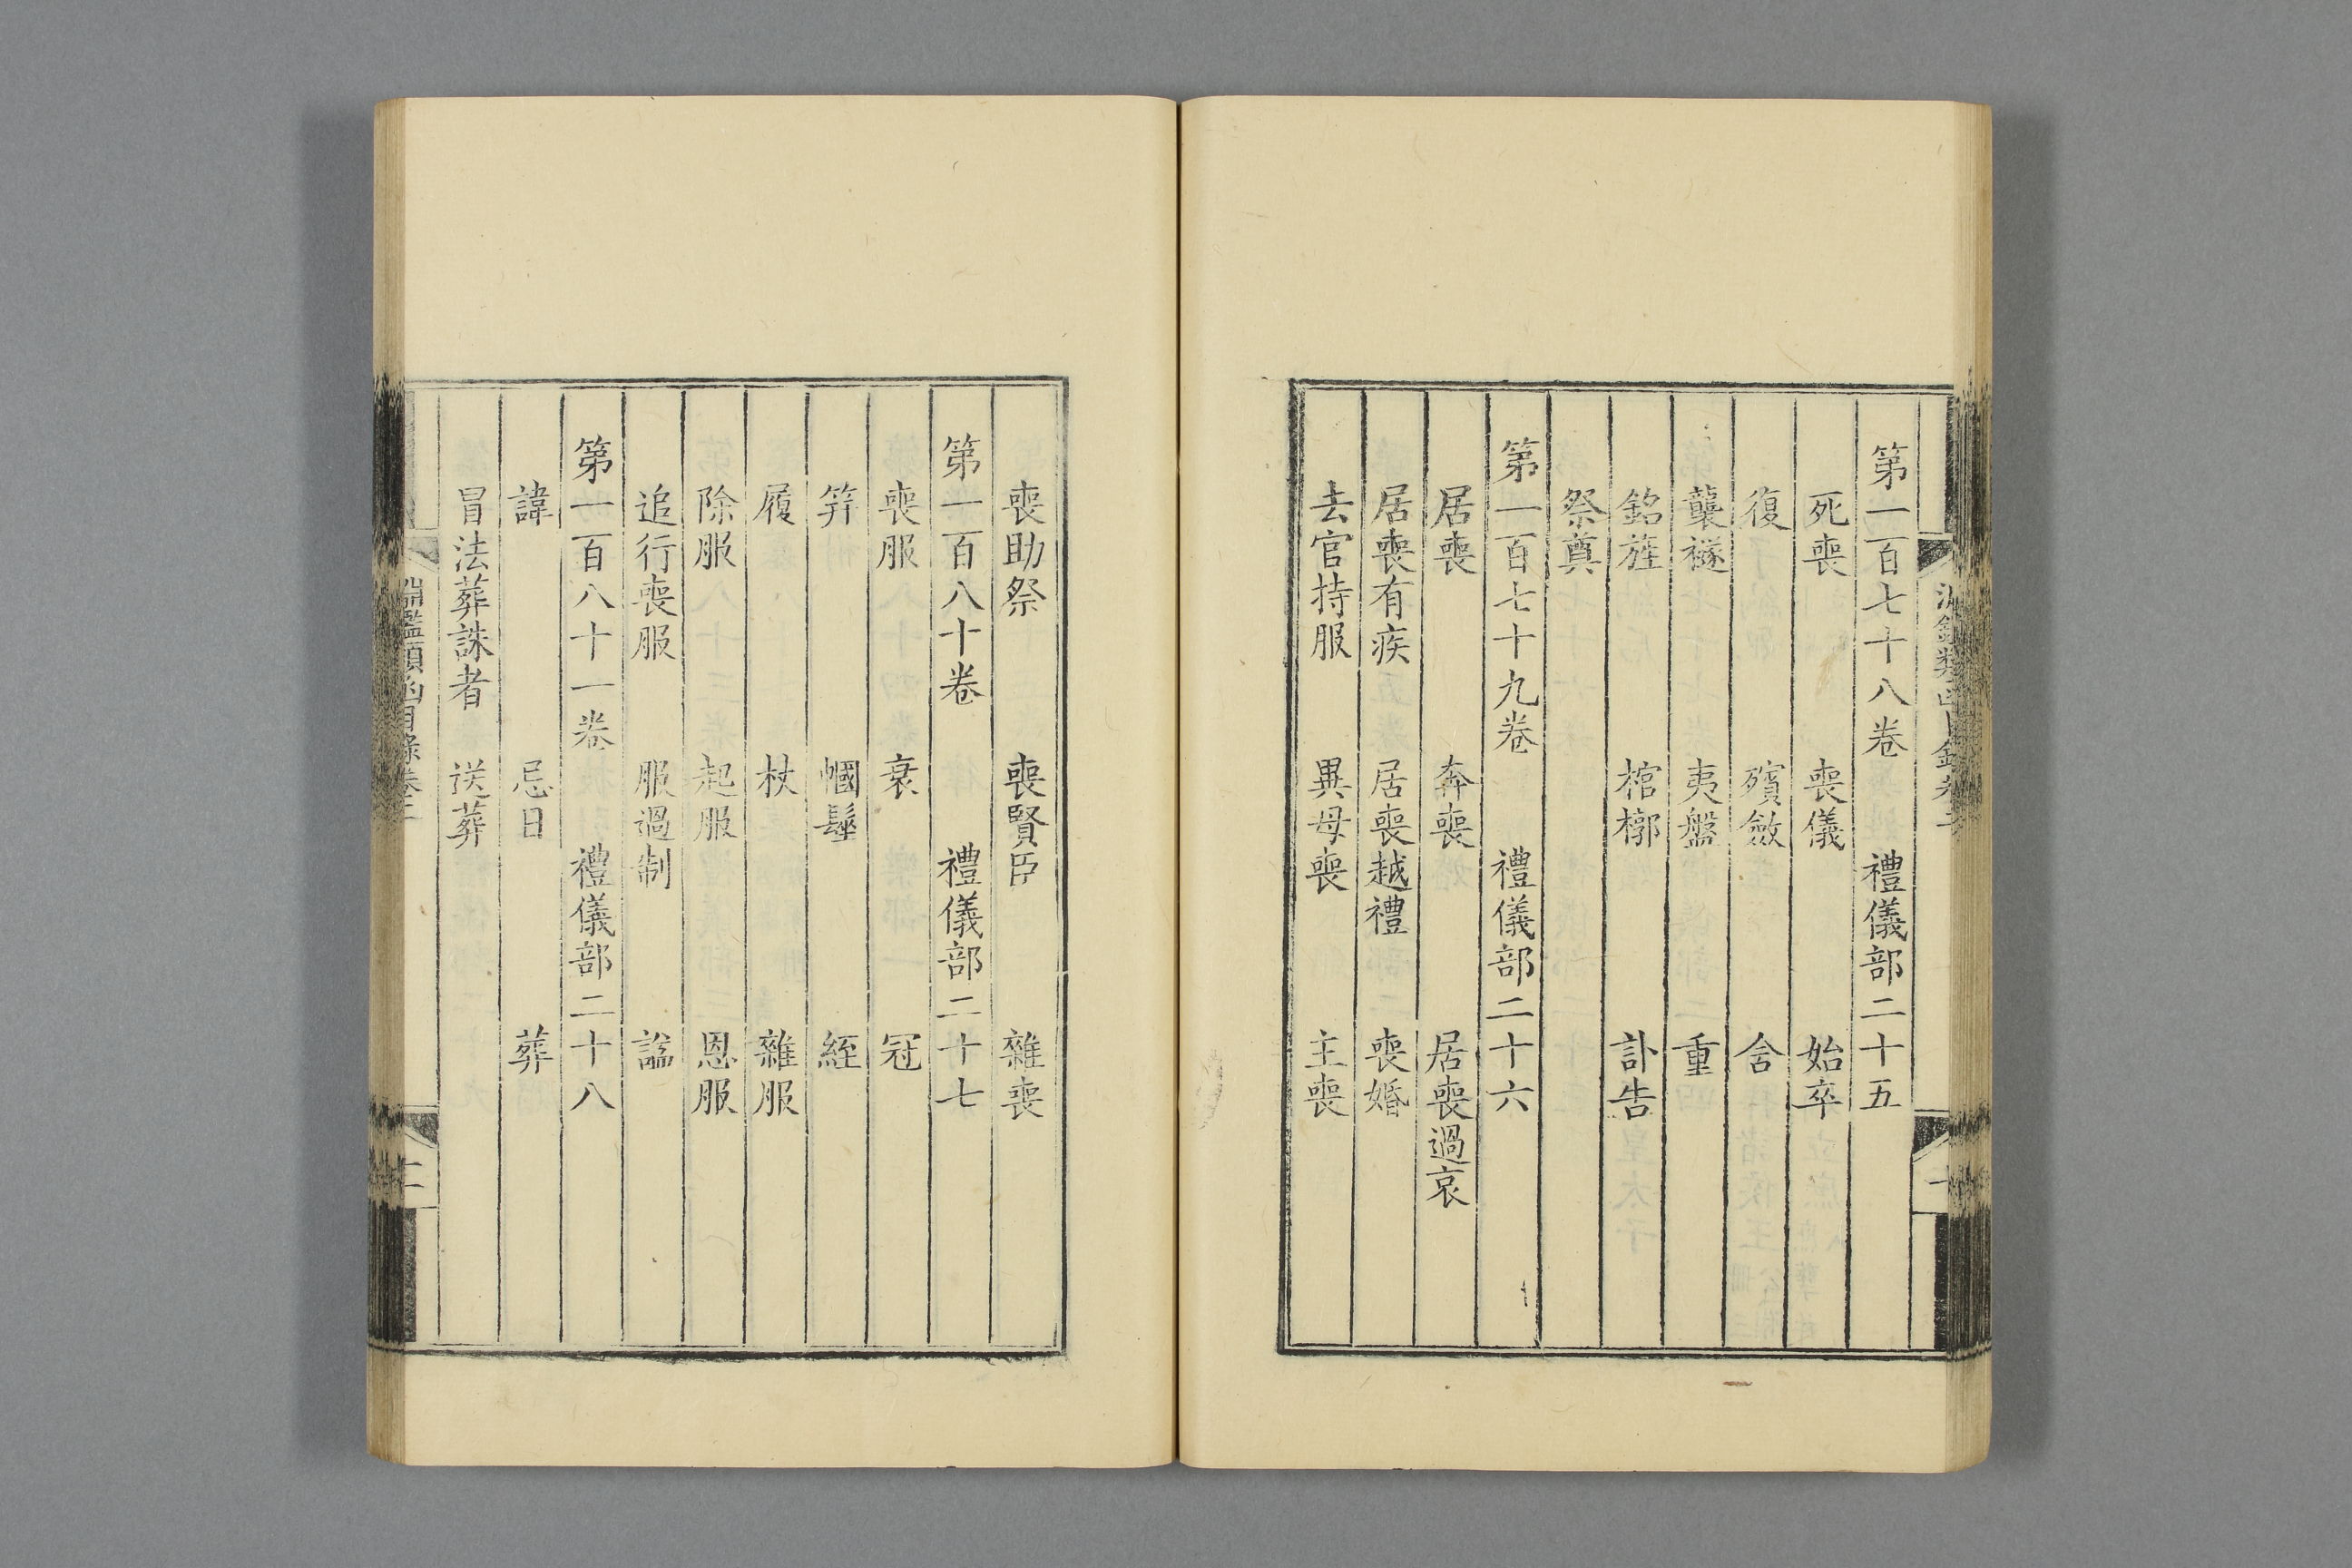 第一百七十八卷　禮儀部二十五
死喪　喪儀　始卒
復　殯斂　含
襲襚　夷盤　重
銘旌　棺槨　訃告
祭奠
第一百七十九卷　禮儀部二十六
居喪　奔喪　居喪過哀
居喪有疾　居喪越禮　喪婚
去官持服　異母喪　主喪
喪助祭　喪賢臣　雜喪
第一百八十卷　禮儀部二十七
喪服　衰　冠
笄　幗髽　絰
履　杖　雜服
除服　起服　恩服
追行喪服　服過制　諡
第一百八十一卷　禮儀部二十八
諱　忌日　葬
冒法葬誅者　送葬
淵鑑類函目錄卷三